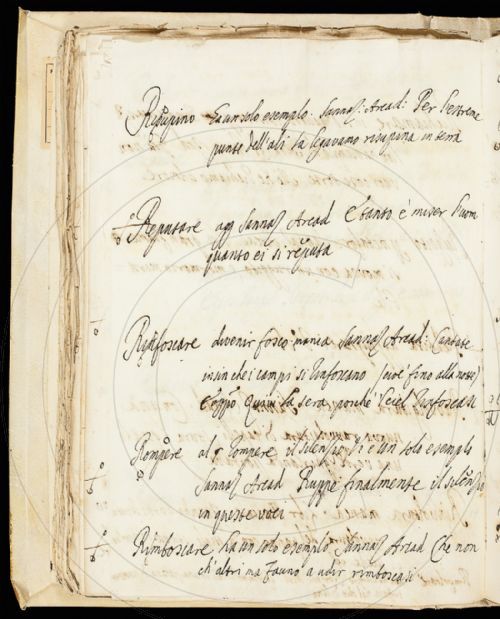 Risupino ha un solo esemplo. Sannaz: Arcad: Per l'estreme
punte dell'ali la legavamo risupina in terra
Reputare agg Sannaz Arcad E tanto è miser l'uom
quanto ei si reputa
Rinfoscare divenir fosco manca Sannaz Arcad: Cantate
insin che i campi si rinfoscano (cioè fino alla notte)
E appo Quivi la sera poiché l ciel rinfoscasi
Rompere al § Rompere il silenzio vi è un solo esemplo
Sannaz Arcad Ruppe finalmente il silenzio
in queste voci
Rimboscare ha un solo esemplo Sannaz Arcad Che non
ch'altri ma Fauno a udir rimboscasi